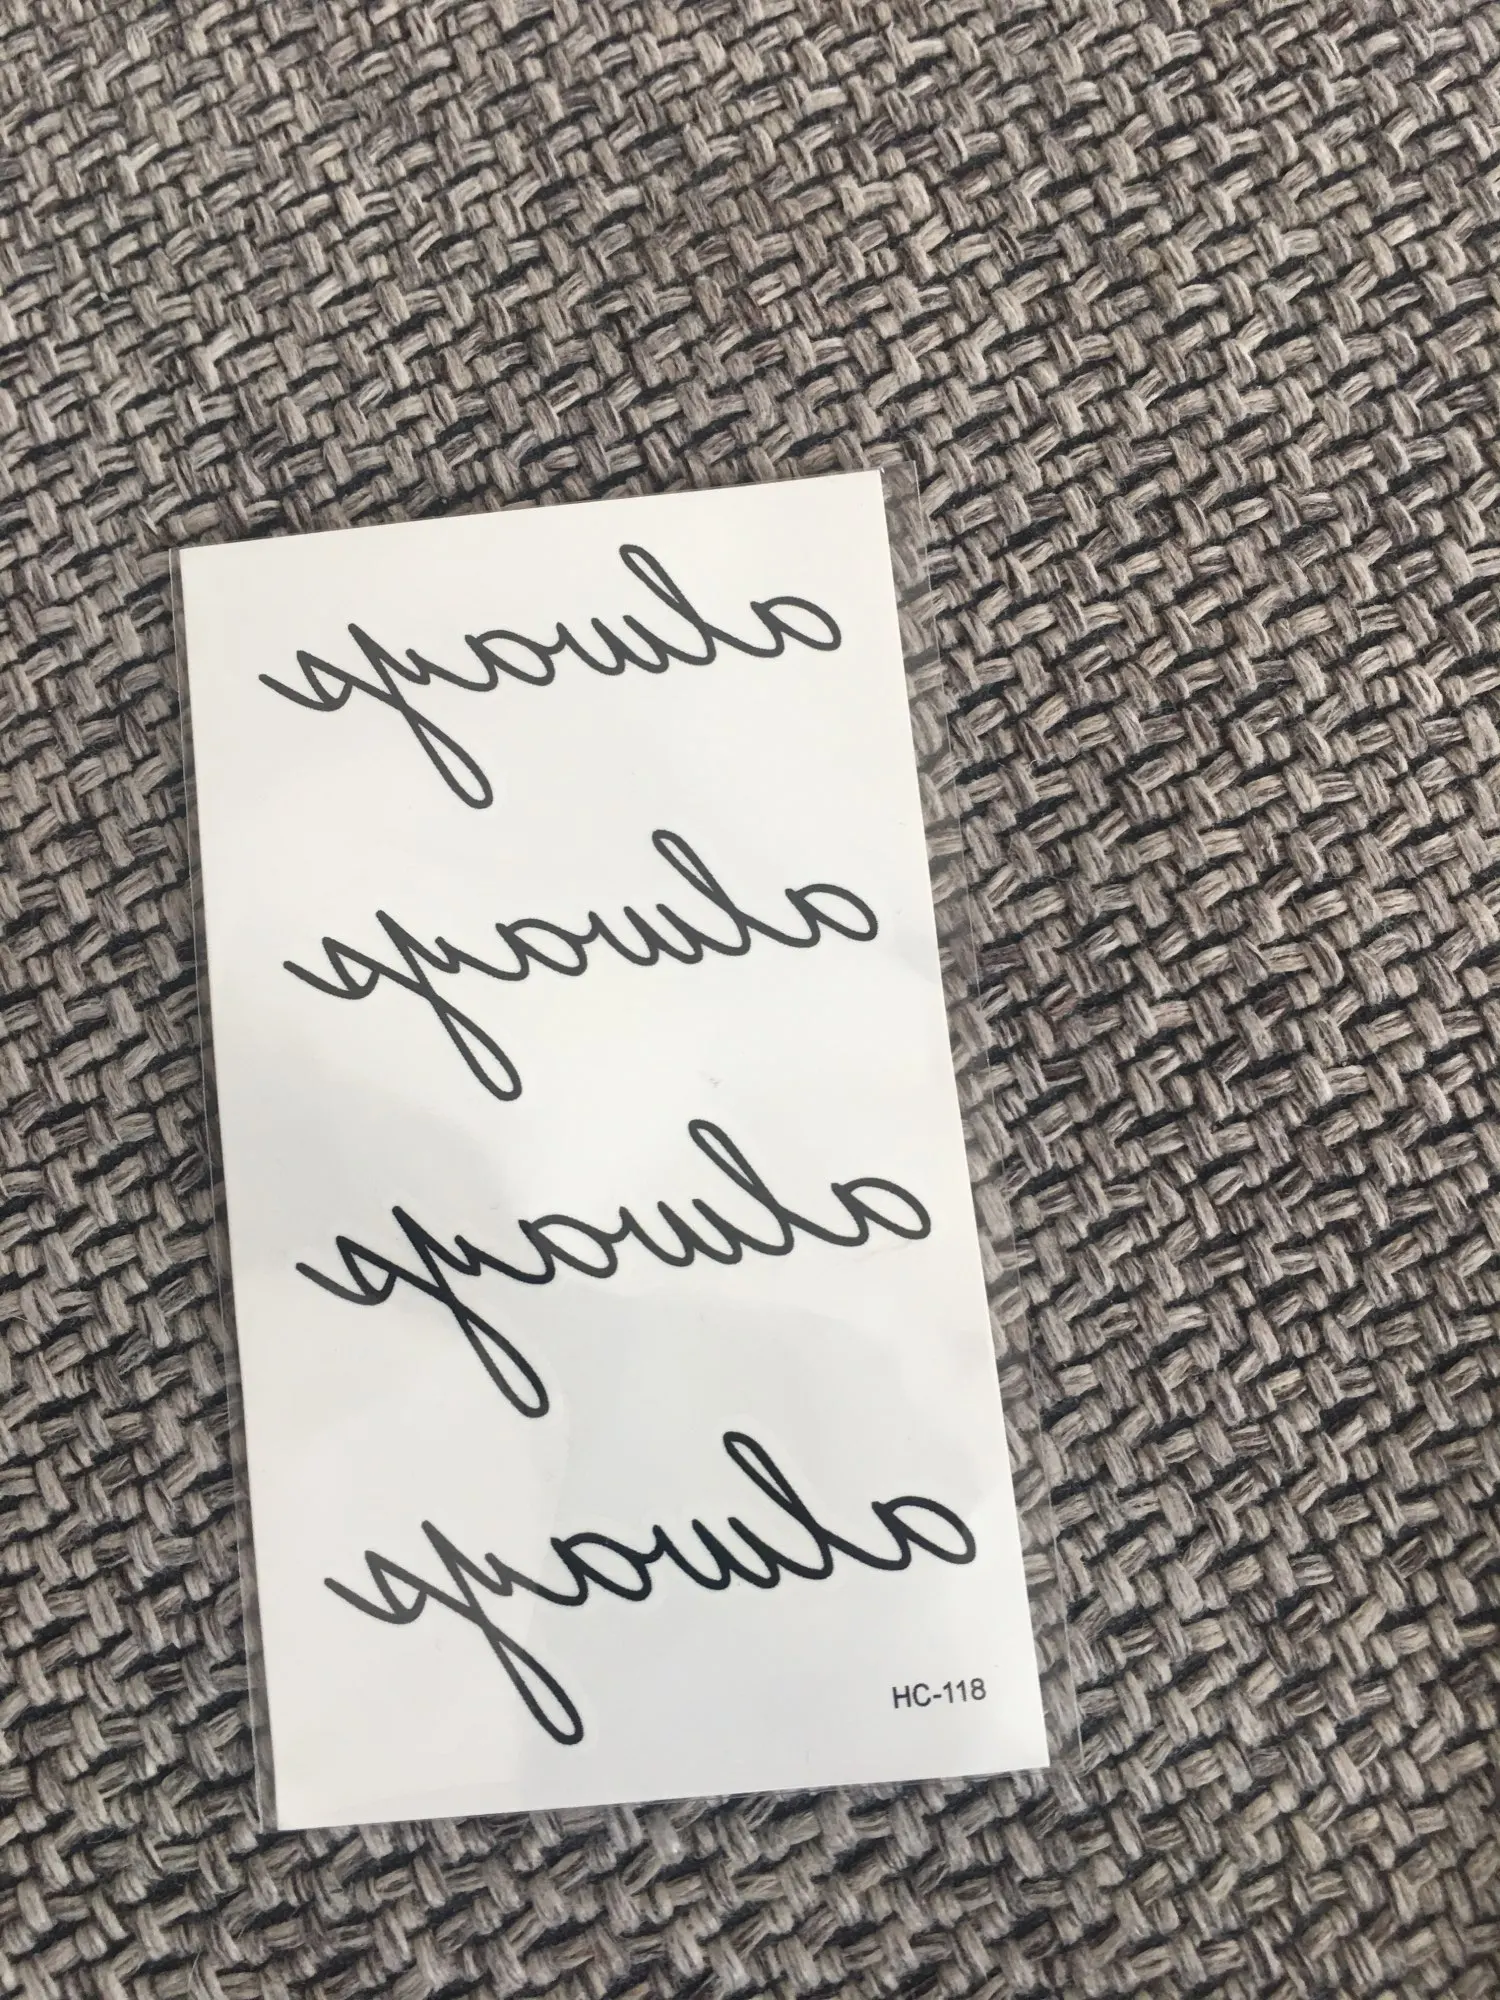 always
always
always
always
HC-118